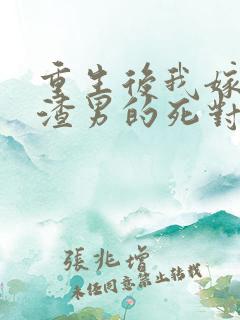 重生後我嫁
渣男的死對
張兆增
未经同意禁止转载